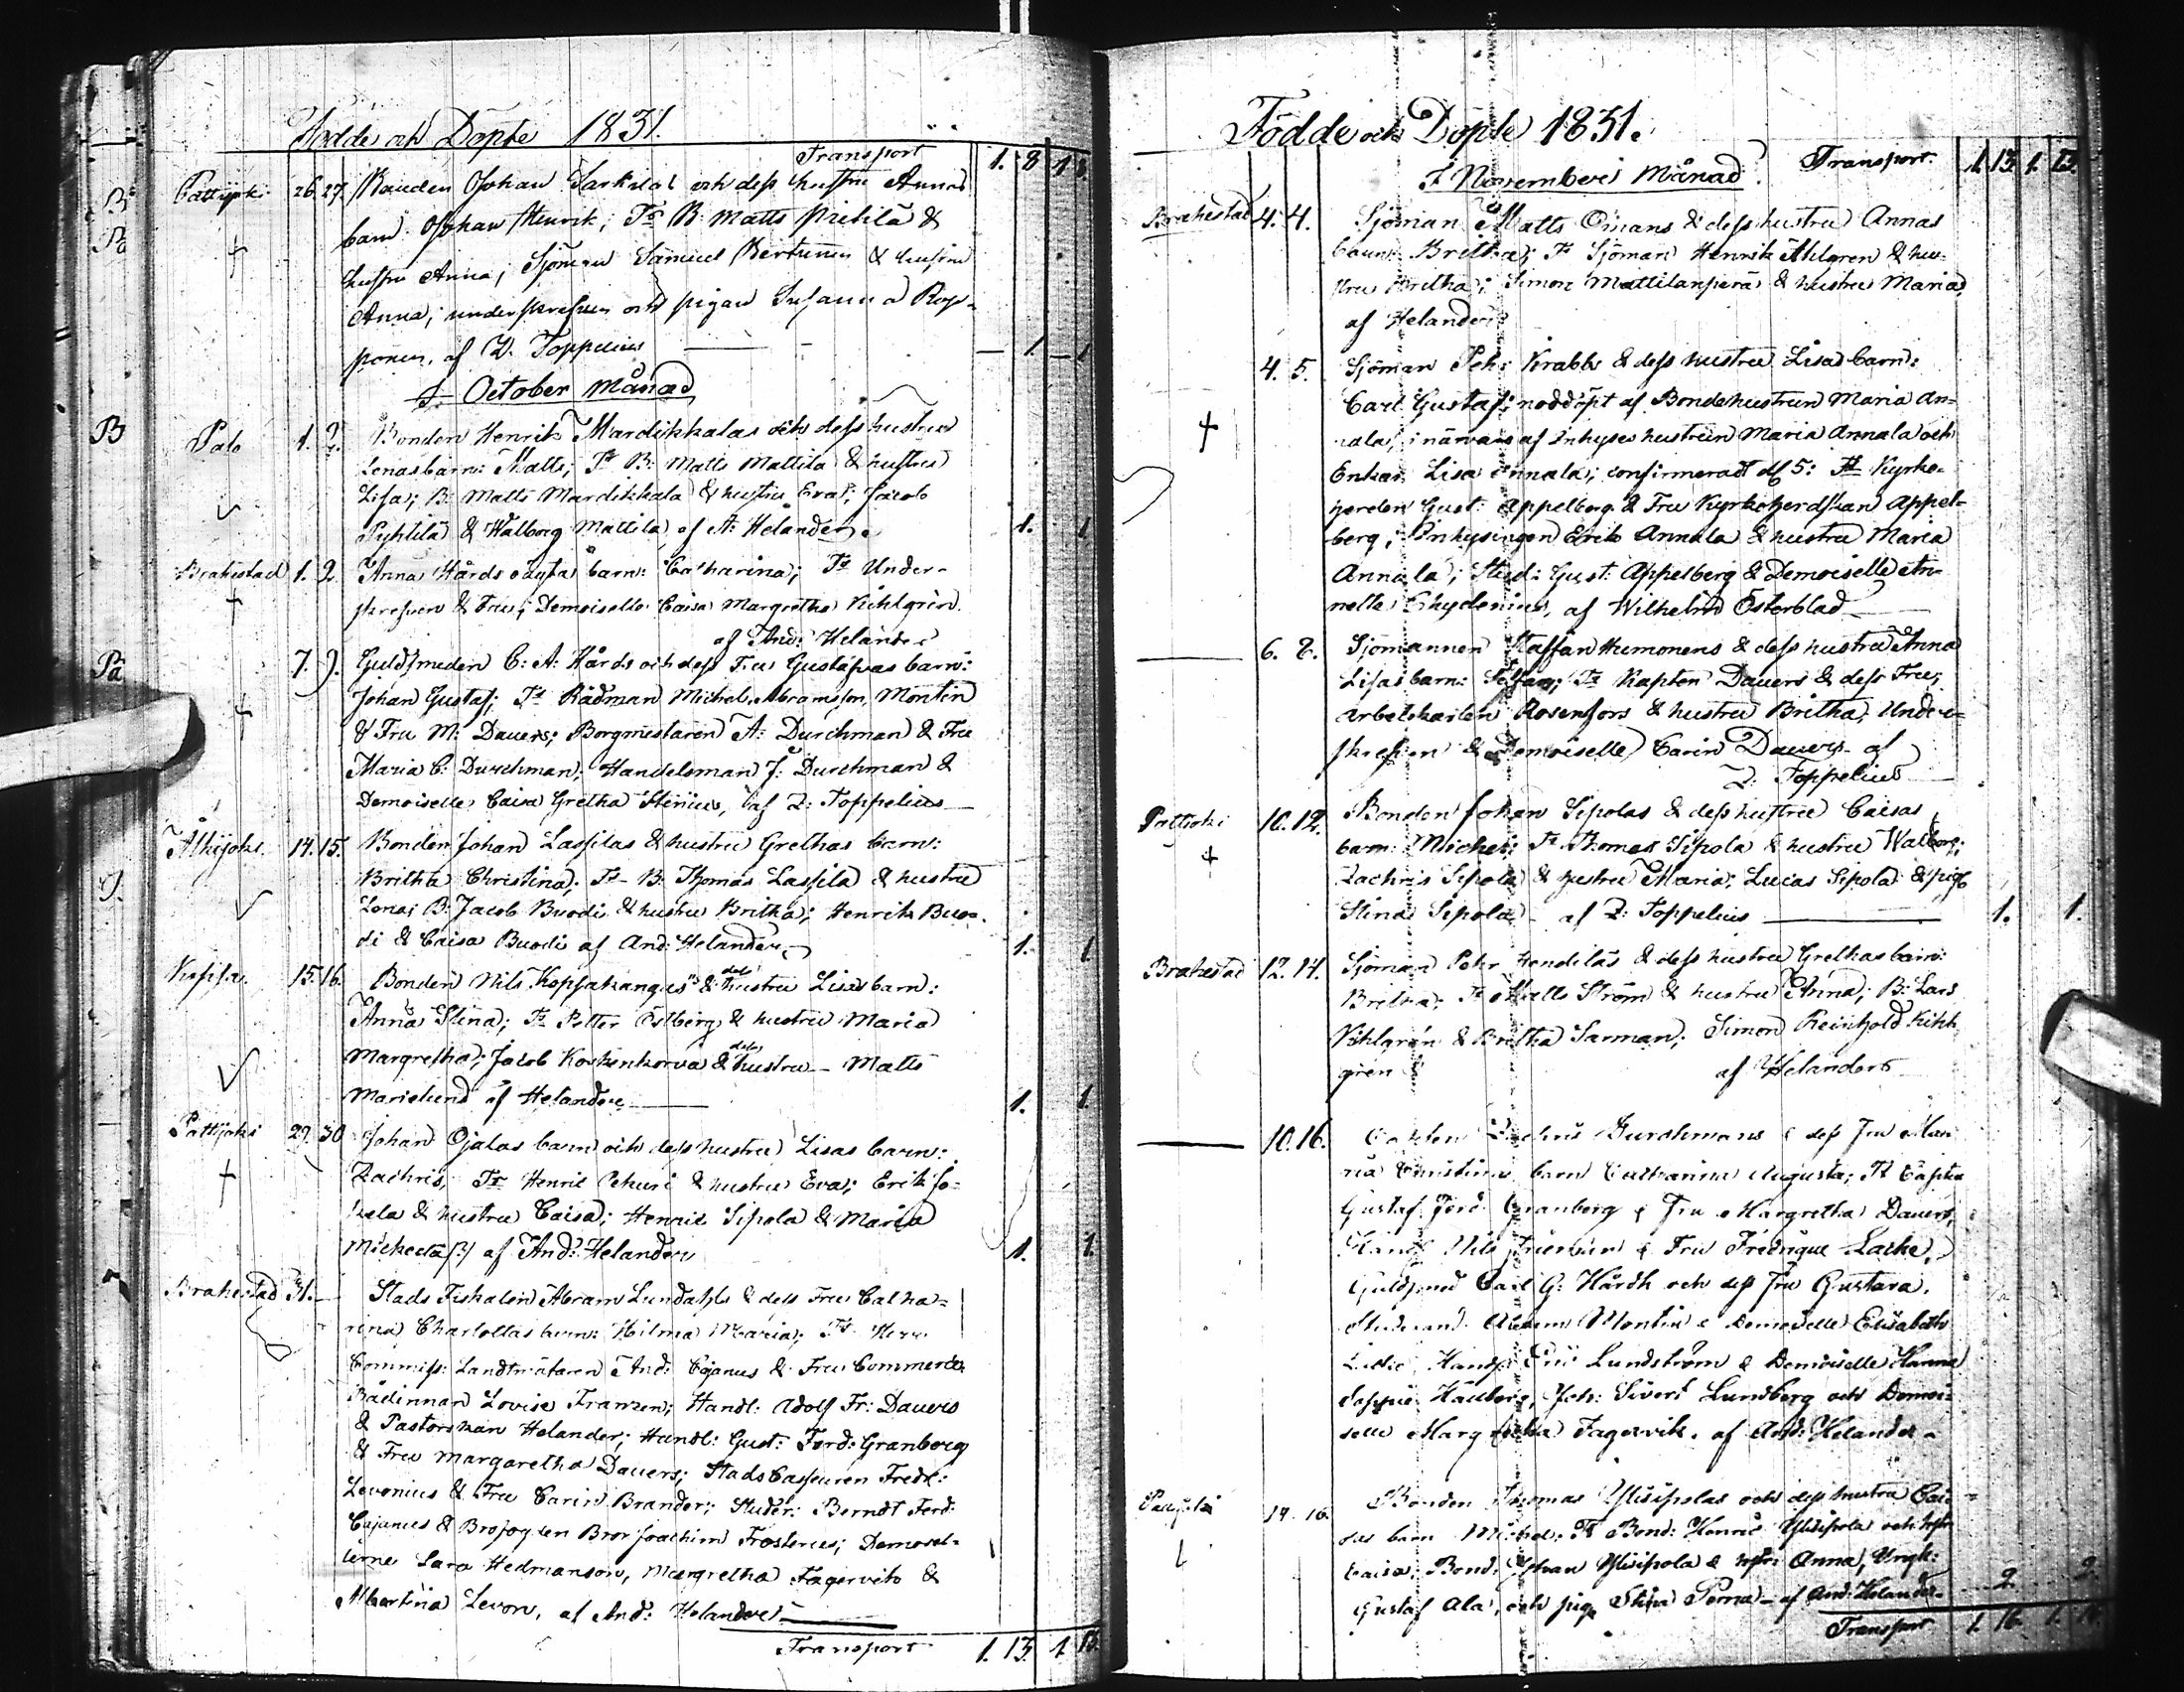 Födde och Döpte 1831.
Transport 1. 8 1. 8
Pattijoki 26. 27. Bonden Johan Sarkalas och dess hustru Annas
barn: Johan Henrik; Ts B: Matts Prihtilä &
hustru Anna; Sjöman Samuel Bertunen & hustru
Anna; underskrefven och pigan Susanna Rop-
ponen, af Z. Toppelius — 1. — 1
I October Månad
Palo 1. 2. Bonden Henrik Mardikkalas och dess hustrus
Lenas barn: Matts; Ts B: Matts Mattila & hustru
Lisa; B: Matts Mardikkala & hustru Eva; Jacob
Pyhtilä & Walborg Mattila af A: Helander. 1. 1
Brahestad 1. 2. Anna Hårds oägta barn: Catharina; Ts Under-
skrefven & Fru; Demoiselle Caisa Margretha Kihlgrén.
af And: Helander
7. 9. Guldsmeden C: A: Hårds och dess Frus Gustafvas barn:
Johan Gustaf; Ts Rådman Michel Abramsson Montin
& Fru M: Dauers; Borgmästaren A: Durchman & Fru
Maria C: Durchman; Handelsman J: Durchman &
Demoiselle Caisa Gretha Stenius, af Z: Toppelius
Alhijoki 14. 15. Bonden Johan Lassilas & hustru Grethas barn:
Britha Christina; Ts B: Thomas Lassila & hustru
Lena; B: Jacob Buodi & hustru Britha; Henrik Buo-
di & Caisa Buodi af And: Helander 1. 1
Kopsa 15. 16. Bonden Nils Kopsakangas & dess hustru Lisas barn:
Anna Stina; Ts Petter Östberg & hustru Maria
Margretha; Jacob Koskenkorva & dess hustru — Matts
Marielund af Helander 1. 1.
Pattijoki 29. 30 Johan Ojalas barn och dess hustru Lisas barn:
Zachris, Ts Henric Pehuri & hustru Eva; Erik Jo-
kela & hustru Caisa; Henric Sipola & Maria
Micheela(?) af And: Helander 1. 1.
Brahestad 31. — Stads Fiskalen Abram Lundahls & dess Frus Catha-
rina Charlottas barn: Hilma Maria; Ts Herr
Commiss: Landtmätaren And: Cajanus & Fru Commerce
Rådinnan Lovise Franzen; Handl: Adolf Fr: Dauers
& Pastorskan Helander; Handl: Gust: Ferd: Granberg
& Fru Margaretha Dauers; Stads Casseuren Fredr:
Levonius & Fru Carin Brander; Studer: Berndt Ferd:
Cajanus & Bror Joachim Frosterus; Demoisel-
lerne Sara Hedmanson, Margretha Fagervik &
Albertina Levon, af And: Helander
Transport 1. 13. 1. 13.
Födde och Döpte 1831.
I Novembris Månad. Transport. 1. 13. 1. 13.
Brahestad 4. 4. Sjöman Matts Ömans & dess hustru Annas
barn: Britha; Ts Sjöman Henrik Ahlgren & hus-
tru Britha; Simon Mattilanperä & hustru Maria,
af Helander
4. 5. Sjöman Pehr Krabbs & dess hustru Lisas barn:
Carl Gustaf; nöddöpt af Bondehustrun Maria An-
nala, i närvaro af Inhyses hustrun Maria Annala och
Enkan Lisa Annala; confirmeradt d 5: Ts Kyrko-
herden Gust: Appelberg & Fru Kyrkoherdskan Appel-
berg; Inhysingen Erik Annala & hustru Maria
Annala; Stud: Gust: Appelberg & Demoiselle An-
nette Chydenius, af Wilhelm Österblad
— 6. 8. Sjömannen Staffan Humonens & dess hustru Anna
Lisas barn: Staffan; Ts Kapten Dauers & dess Fru;
Arbetskarlen Rosenfors & hustru Britha; Under-
skrefven & Demoiselle Carin Dauers af
Z: Toppelius
Pattijoki 10. 12. Bonden Johan Sipolas & dess hustru Caisas
barn: Michel; Ts Thomas Sipola & hustru Walborg;
Zachris Sipola & hustru Maria; Lucas Sipola & pig
Stina Sipola af Z: Toppelius 1. 1.
Brahestad 12. 14. Sjöman Pehr Hendiläs & dess hustru Grethas barn:
Britha; Ts Matts Ström & hustru Anna; B: Lars
Kihlgrén & Britha Sarman; Simon Reinhold Kihl-
gren af Helander
— 10. 16. Capten Zachris Durchmans & dess Fru Ma-
ria Christinas barn Catharina Augusta; Ts Capten
Gustaf Ferd: Granberg & Fru Margretha Dauers,
Handl Nils & Fru Fredrique Lacke,
Guldsmed Carl G: Hårdh och dess Fru Gustava.
Studerand. Abram Montin & Demoiselle Elisabeth
Handl Eric Lundström & Demoiselle Hanna
Sophie Hallberg, Joh: Sivert Lundberg och Demoi-
selle Margretha Fagervik. af And: Helander
14. 16. Bonden Thomas Ylisipolas och dess hustru Cai-
sas barn Michel; Ts Bond: Henric Ylisipola och hstr
Caisa; Bond. Johan Ylisipola & hstr: Anna, Yngl:
Gustaf Ala, och pig. Stina Perna — af And. Helander 2. 2.
Transport 1. 16. 1.